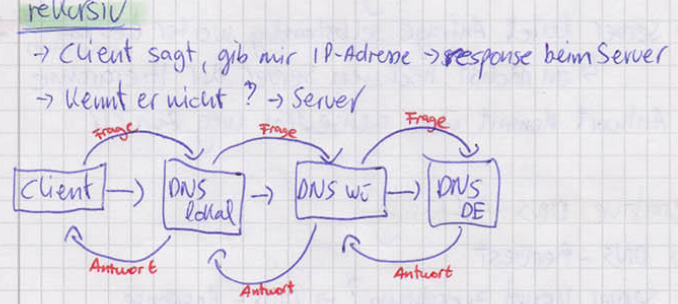 rekursiv
→ Client sagt, gib mir IP-Adresse → response beim Server
→ Kennt er nicht? → Server
Frage Frage Frage
Client → DNS lokal → DNS Wü → DNS DE
Antwort Antwort Antwort